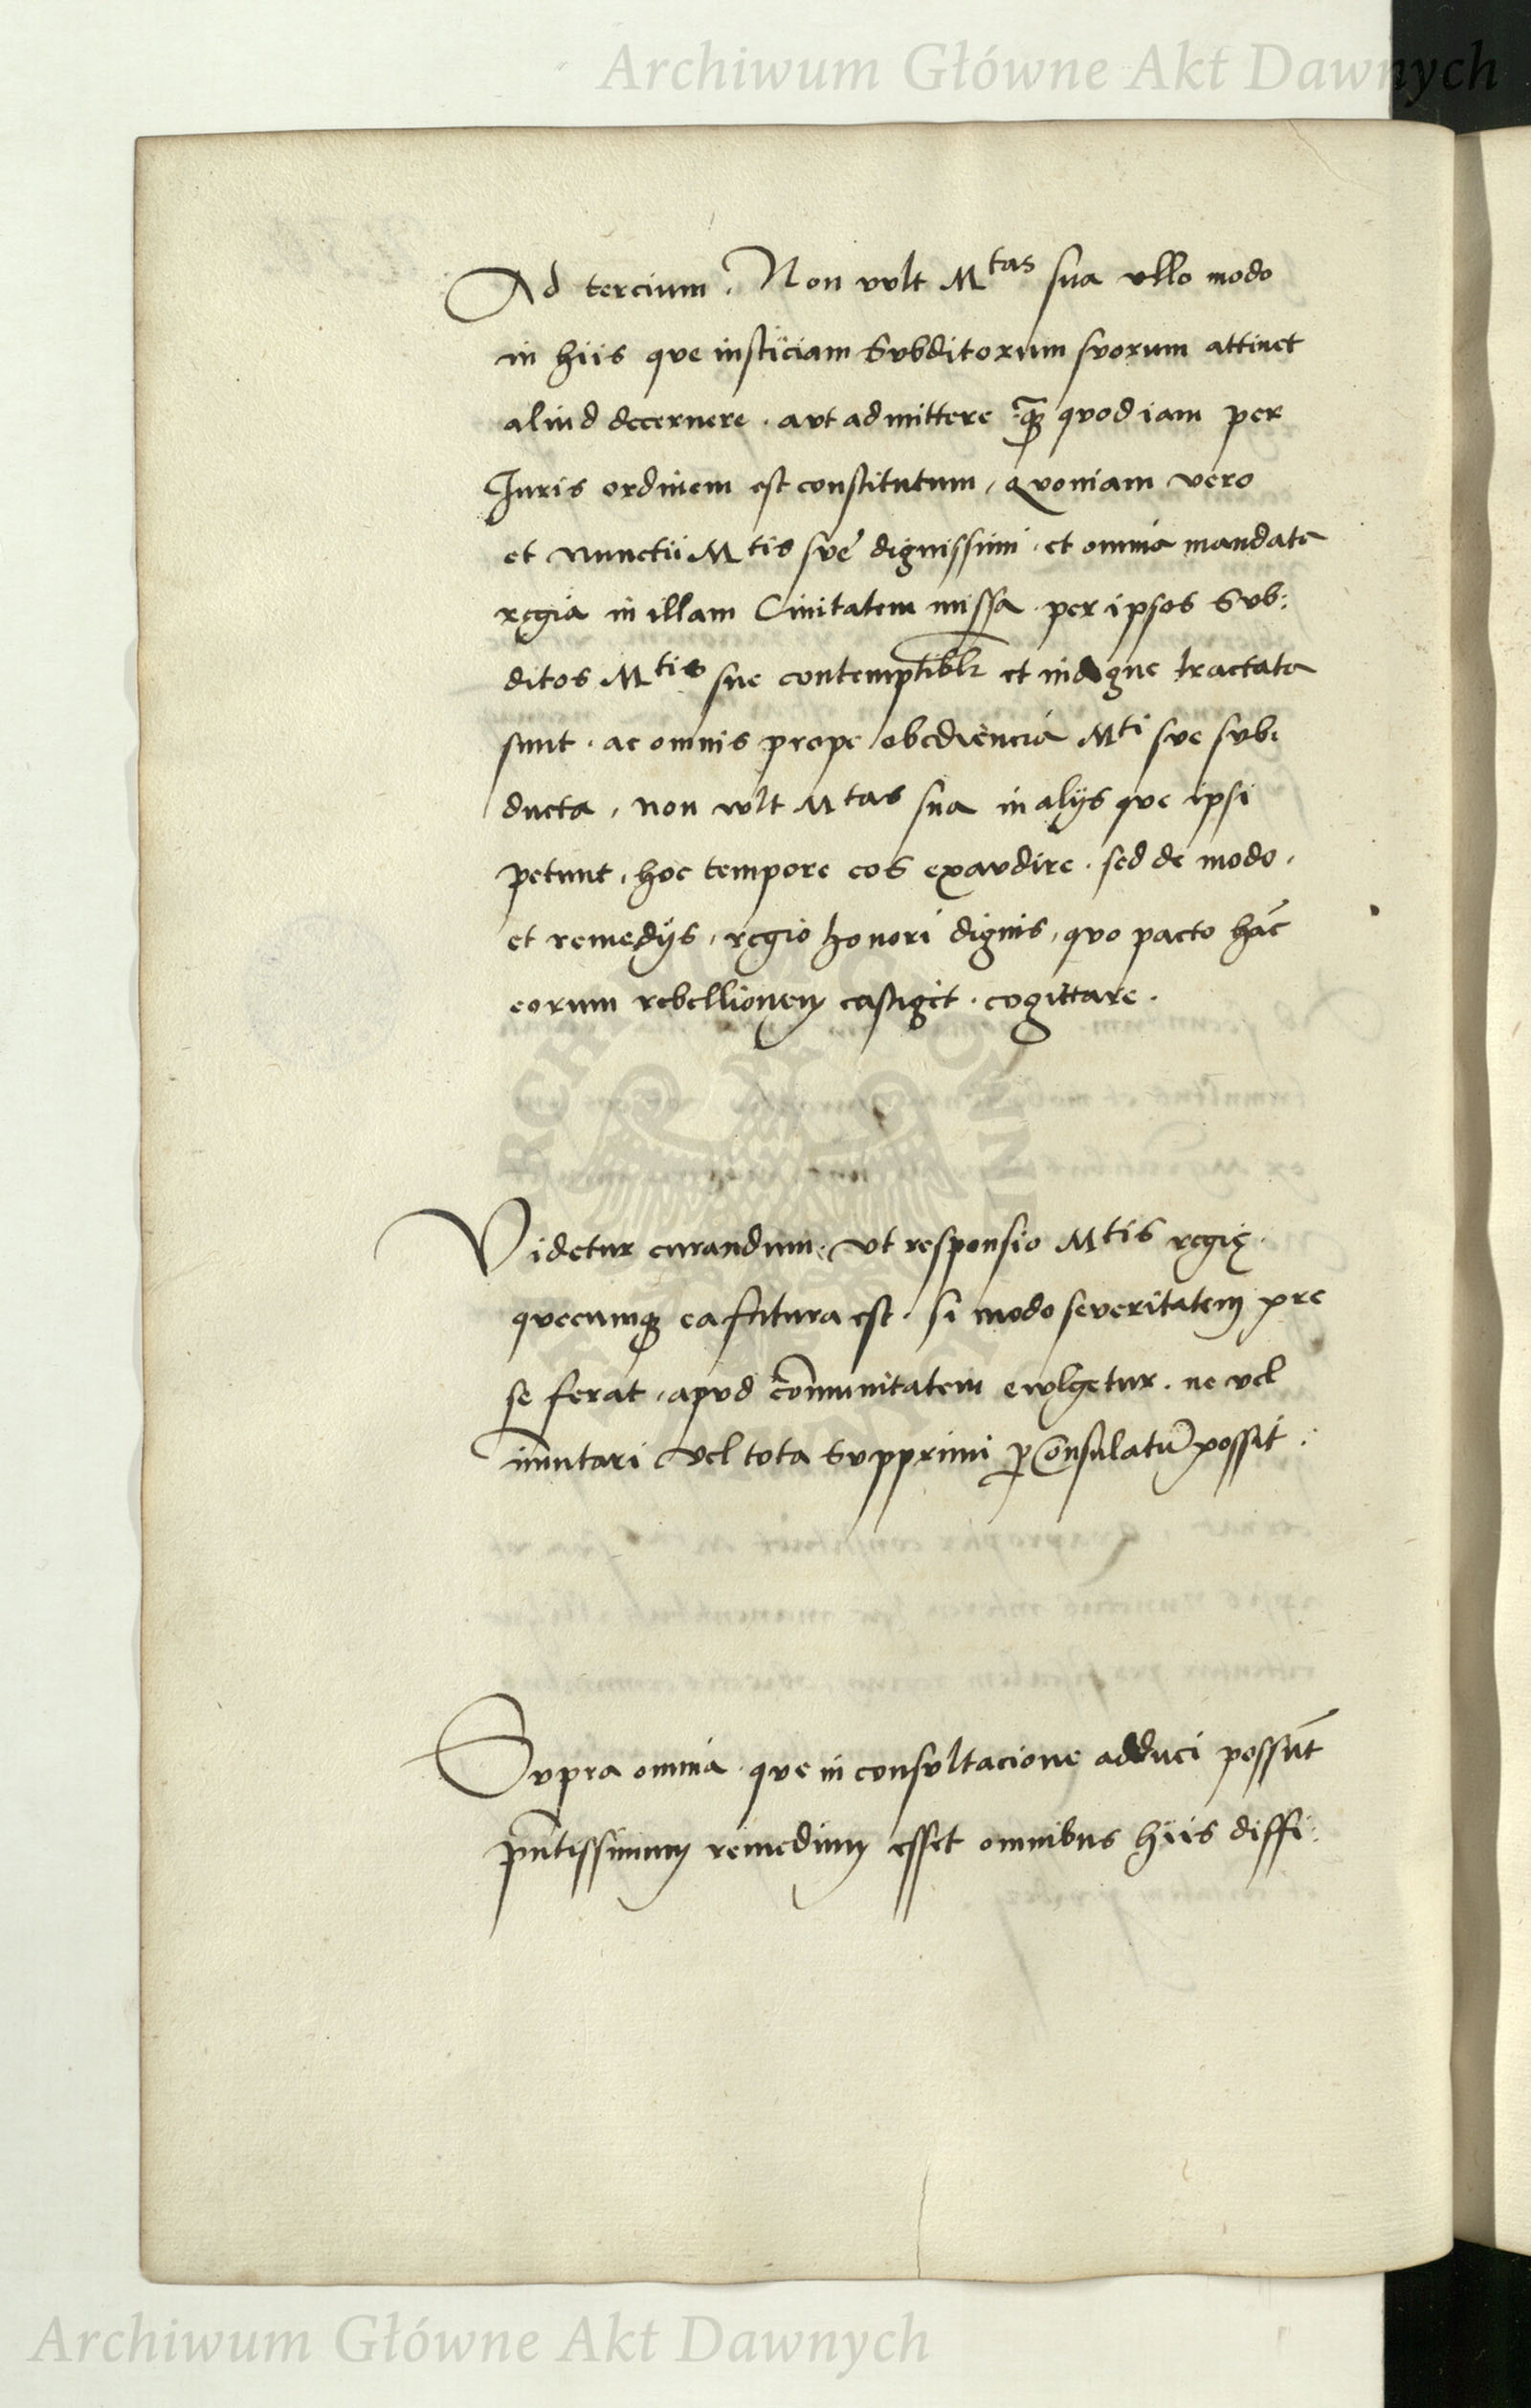 Archiwum Główne Akt Dawnych
Ad tercium. Non vvlt Mtas sua vllo modo
in hiis que iusticiam Svbditorum svorum attinet
aliud decernere. avt admittere qꝫ qvod iam per
Iuris ordinem est constitutum, Qvoniam vero
et nunctii Mtis sve dignissimi. et omnia mandata
regia in illam Ciuitatem missa. per ipsos Svb:
ditos Mtis sue contemptiblr et indigne tractata
sunt. ac omnis prope obediencia Mti sve svb:
ducta, non wlt Mtas sua in alijs qve ipsi
petunt, hoc tempore eos exavdire. sed de modo,
et remedijs, regio honori dignis, qvo pacto hāc
eorum rebellionem castiget. cogittare.
Videtur curandum, vt responsio Mtis regię.
qvecumqꝫ ea futura est. si modo severitatem pre
se ferat, apvd cōmunitatem ewlgetur. ne vel
im̄utari vel tota Svpprimi ꝑ Consulatū possit.
Svpra omnia qve in consvltacione adduci possūt
pn̄tissimum remedium esset omnibus hiis diffi:
Archiwum Główne Akt Dawnych